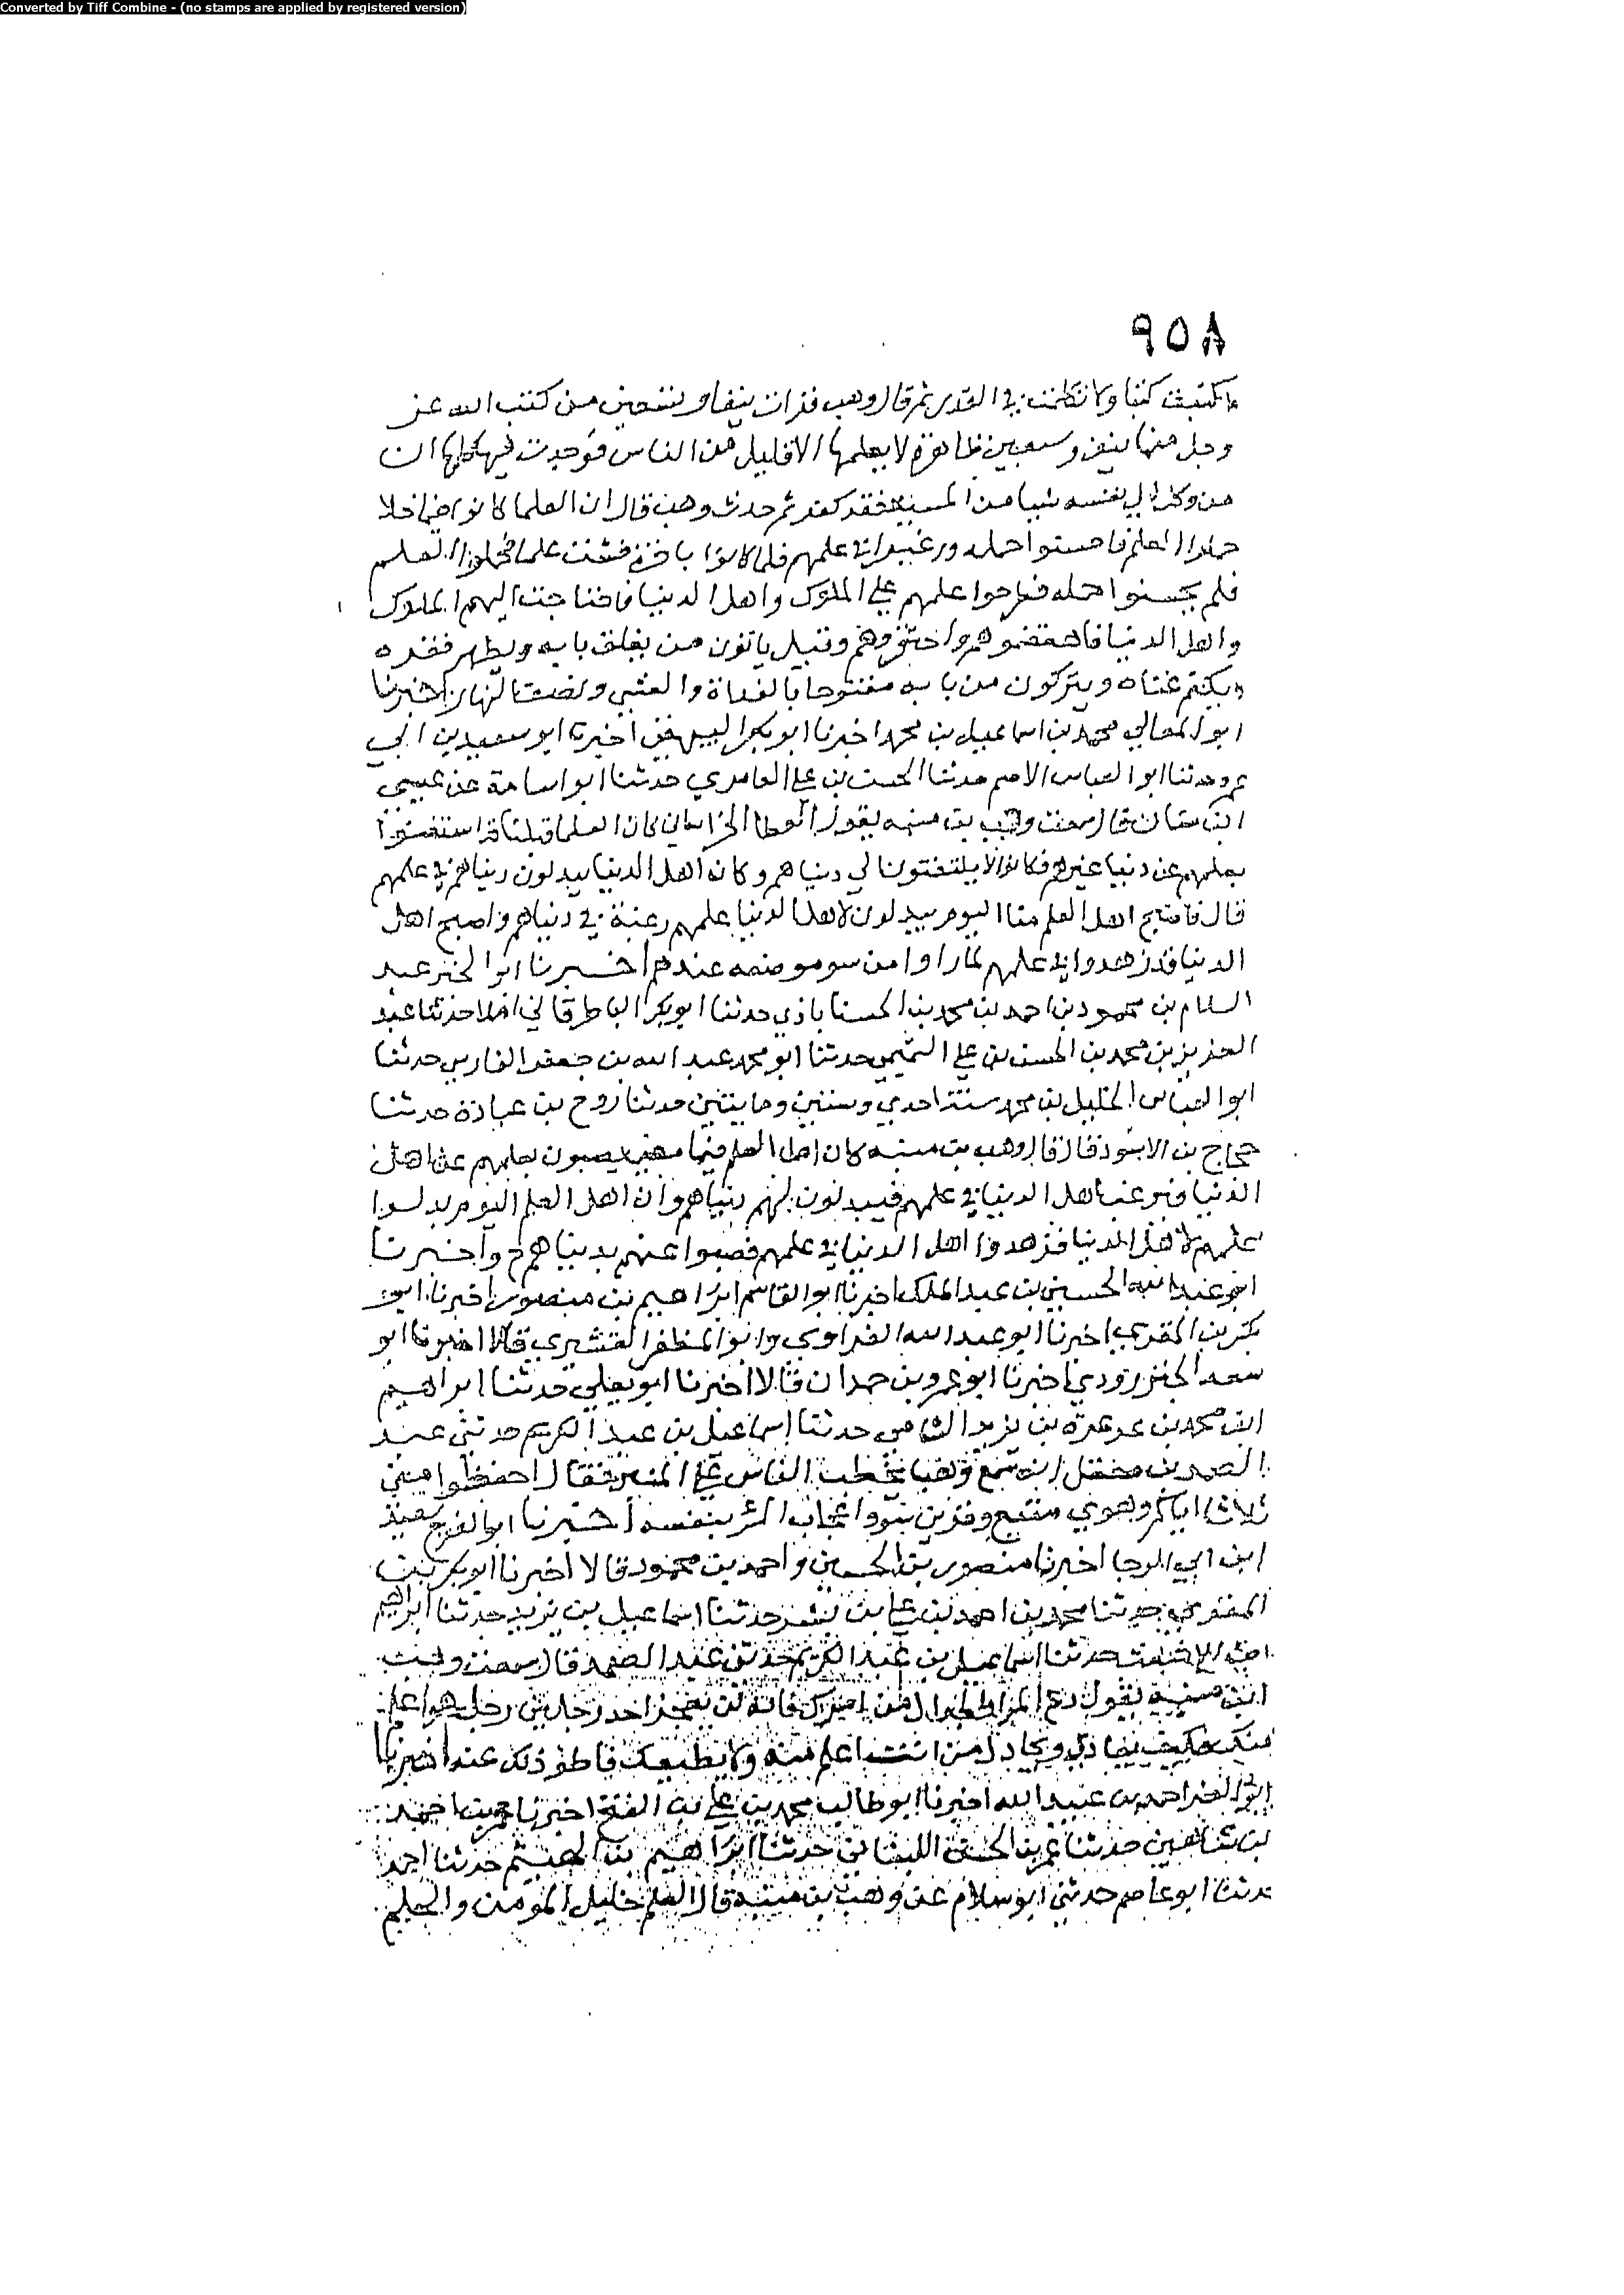 Converted by Tiff Combine - (no stamps are applied by registered version)
٩٥٨
ما كتبت كتبا ولا تكلمت في القدر ثم قال وهب قرات نيفا وتسعين من كتب الله عز
وجل منها نيف وسبعين ظاهرة لا يعلمها الا قليل من الناس فوجدت فيها كلها ان
من وكل الي نفسه شيا من المسية فقد كفر ثم حدث وهب قال ان العلما كانوا فيما خلا
حملوا العلم فاحسنوا حمله ورغبوا في علمهم فلما كانوا باخرة فشت علما فحملوا العلم
فلم يحسنوا حمله فطرحوا علمهم علي الملوك واهل الدنيا فاحتاجت اليهم الملوك
واهل الدنيا فاهتضموهم واحتقروهم وقبيل ياتون من يغلق بابه ويظهر فقره
ويكتم غناه ويتركون من بابه مفتوحا بالغداة والعشي ونصف النهار اخبرنا
ابو المعالي محمد بن اسماعيل بن محمد اخبرنا ابو بكر البيهقي اخبرنا ابو سعيد بن ابي
عمرو حدثنا ابو العباس الاصم حدثنا الحسن بن علي العامري حدثنا ابو اسامة عن عيسي
ابن سنان قال سمعت وهب بن منبه يقول لعطا الخراساني كان العلما قبلنا قد استغنوا
بعلمهم عن دنيا غيرهم فكانوا لا يلتفتون الي دنياهم وكان اهل الدنيا يبدلون دنياهم في علمهم
قال فاصبح اهل العلم منا اليوم يبدلون لاهل الدنيا علمهم رغبة في دنياهم واصبح اهل
الدنيا قد زهدوا في علمهم لما راوا من سو موضعه عندهم اخبرنا ابو الخير عبد
السلام بن محمود بن احمد بن محمد بن الحسناباذي حدثنا ابو بكر الباطرقاني املا حدثنا عبد
العزيز بن محمد بن الحسن بن علي التميمي حدثنا ابو محمد عبد الله بن جعفر الفارسي حدثنا
ابو العباس الخليل بن محمد سنة احدي وستين ومايتين حدثنا روح بن عبادة حدثنا
حجاج بن الاسود قال قال وهب بن منبه كان اهل العلم فيما مضي يضنون بعلمهم عن اهل
الدنيا فيرغب اهل الدنيا في علمهم فيبدلون لهم دنياهم وان اهل العلم اليوم بدلوا
علمهم لاهل الدنيا فزهدوا اهل الدنيا في علمهم فضنوا عنهم بدنياهم ح واخبرنا
ابو عبد الله الحسين بن عبد الملك اخبرنا ابو القاسم ابراهيم بن منصور اخبرنا ابو
بكر بن المقري اخبرنا ابو عبد الله الفراوي وابو المظفر القشيري قالا اخبرنا ابو
سعد الجنزرودي اخبرنا ابو عمرو بن حمدان قالا اخبرنا ابو يعلي حدثنا ابراهيم
ابن محمد بن عرعرة بن يزيد الشامي حدثنا اسماعيل بن عبد الكريم حدثني عبد
الصمد بن معقل انه سمع وهبا يخطب الناس علي المنبر فقال احفظوا مني
ثلاثا اياكم وهوي متبع وقرين سو واعجاب المر بنفسه اخبرنا ابو الفرج سعيد
ابن ابي الرجا اخبرنا منصور بن الحسين واحمد بن محمود قالا اخبرنا ابو بكر بن
المقري حدثنا محمد بن احمد بن علي بن بشر حدثنا اسماعيل بن يزيد حدثنا ابراهيم
ابن الاشعث حدثنا اسماعيل بن عبد الكريم حدثني عبد الصمد قال سمعت وهب
ابن منبه يقول دع المرا والجدال من امرك فانه لن يعجز احد رجلين رجل هو اعلم
منك فكيف تعادي وتجادل من انت اعلم منه ولا يطيعك فاطو ذلك عنه اخبرنا
ابو العز احمد بن عبيد الله اخبرنا ابو طالب محمد بن علي بن الفتح اخبرنا عمر بن احمد
بن شاهين حدثنا عمر بن الحسن الشيباني حدثنا ابراهيم بن الهيثم حدثنا احمد
حدثنا ابو عاصم حدثني ابو سلام عن وهب بن منبه قال العلم خليل المومن والحلم